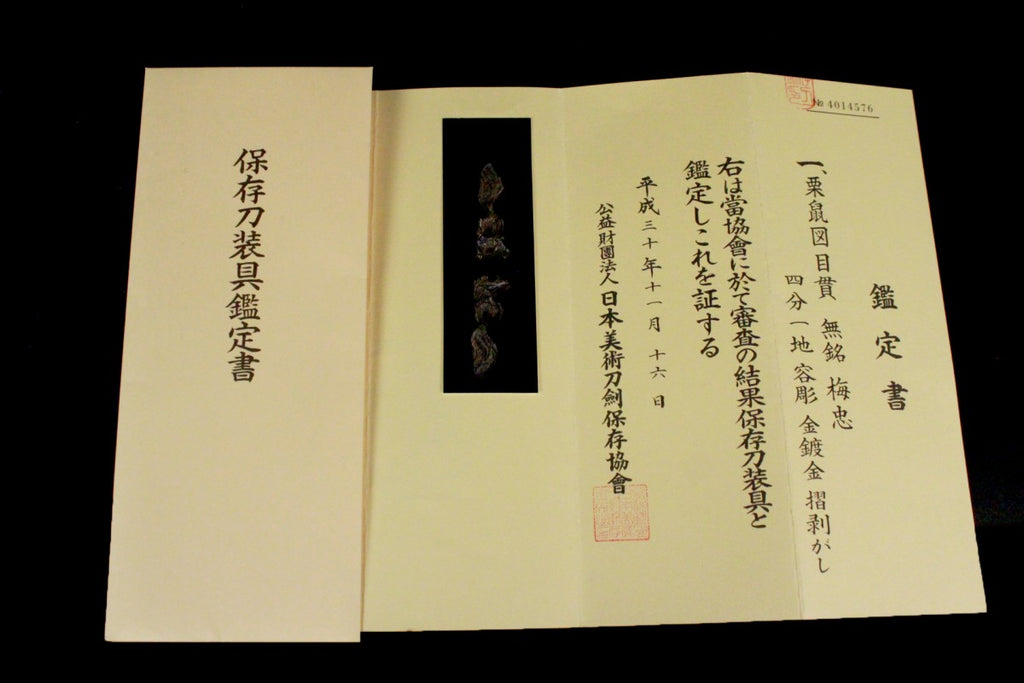 保存刀装具鑑定書
№ 4014576
鑑定書
一、栗鼠図目貫 無銘 梅忠
四分一地 容彫 金鍍金 摺剥がし
右は當協會に於て審査の結果保存刀装具と
鑑定しこれを証する
平成三十年十一月十六日
公益財團法人 日本美術刀劍保存協會